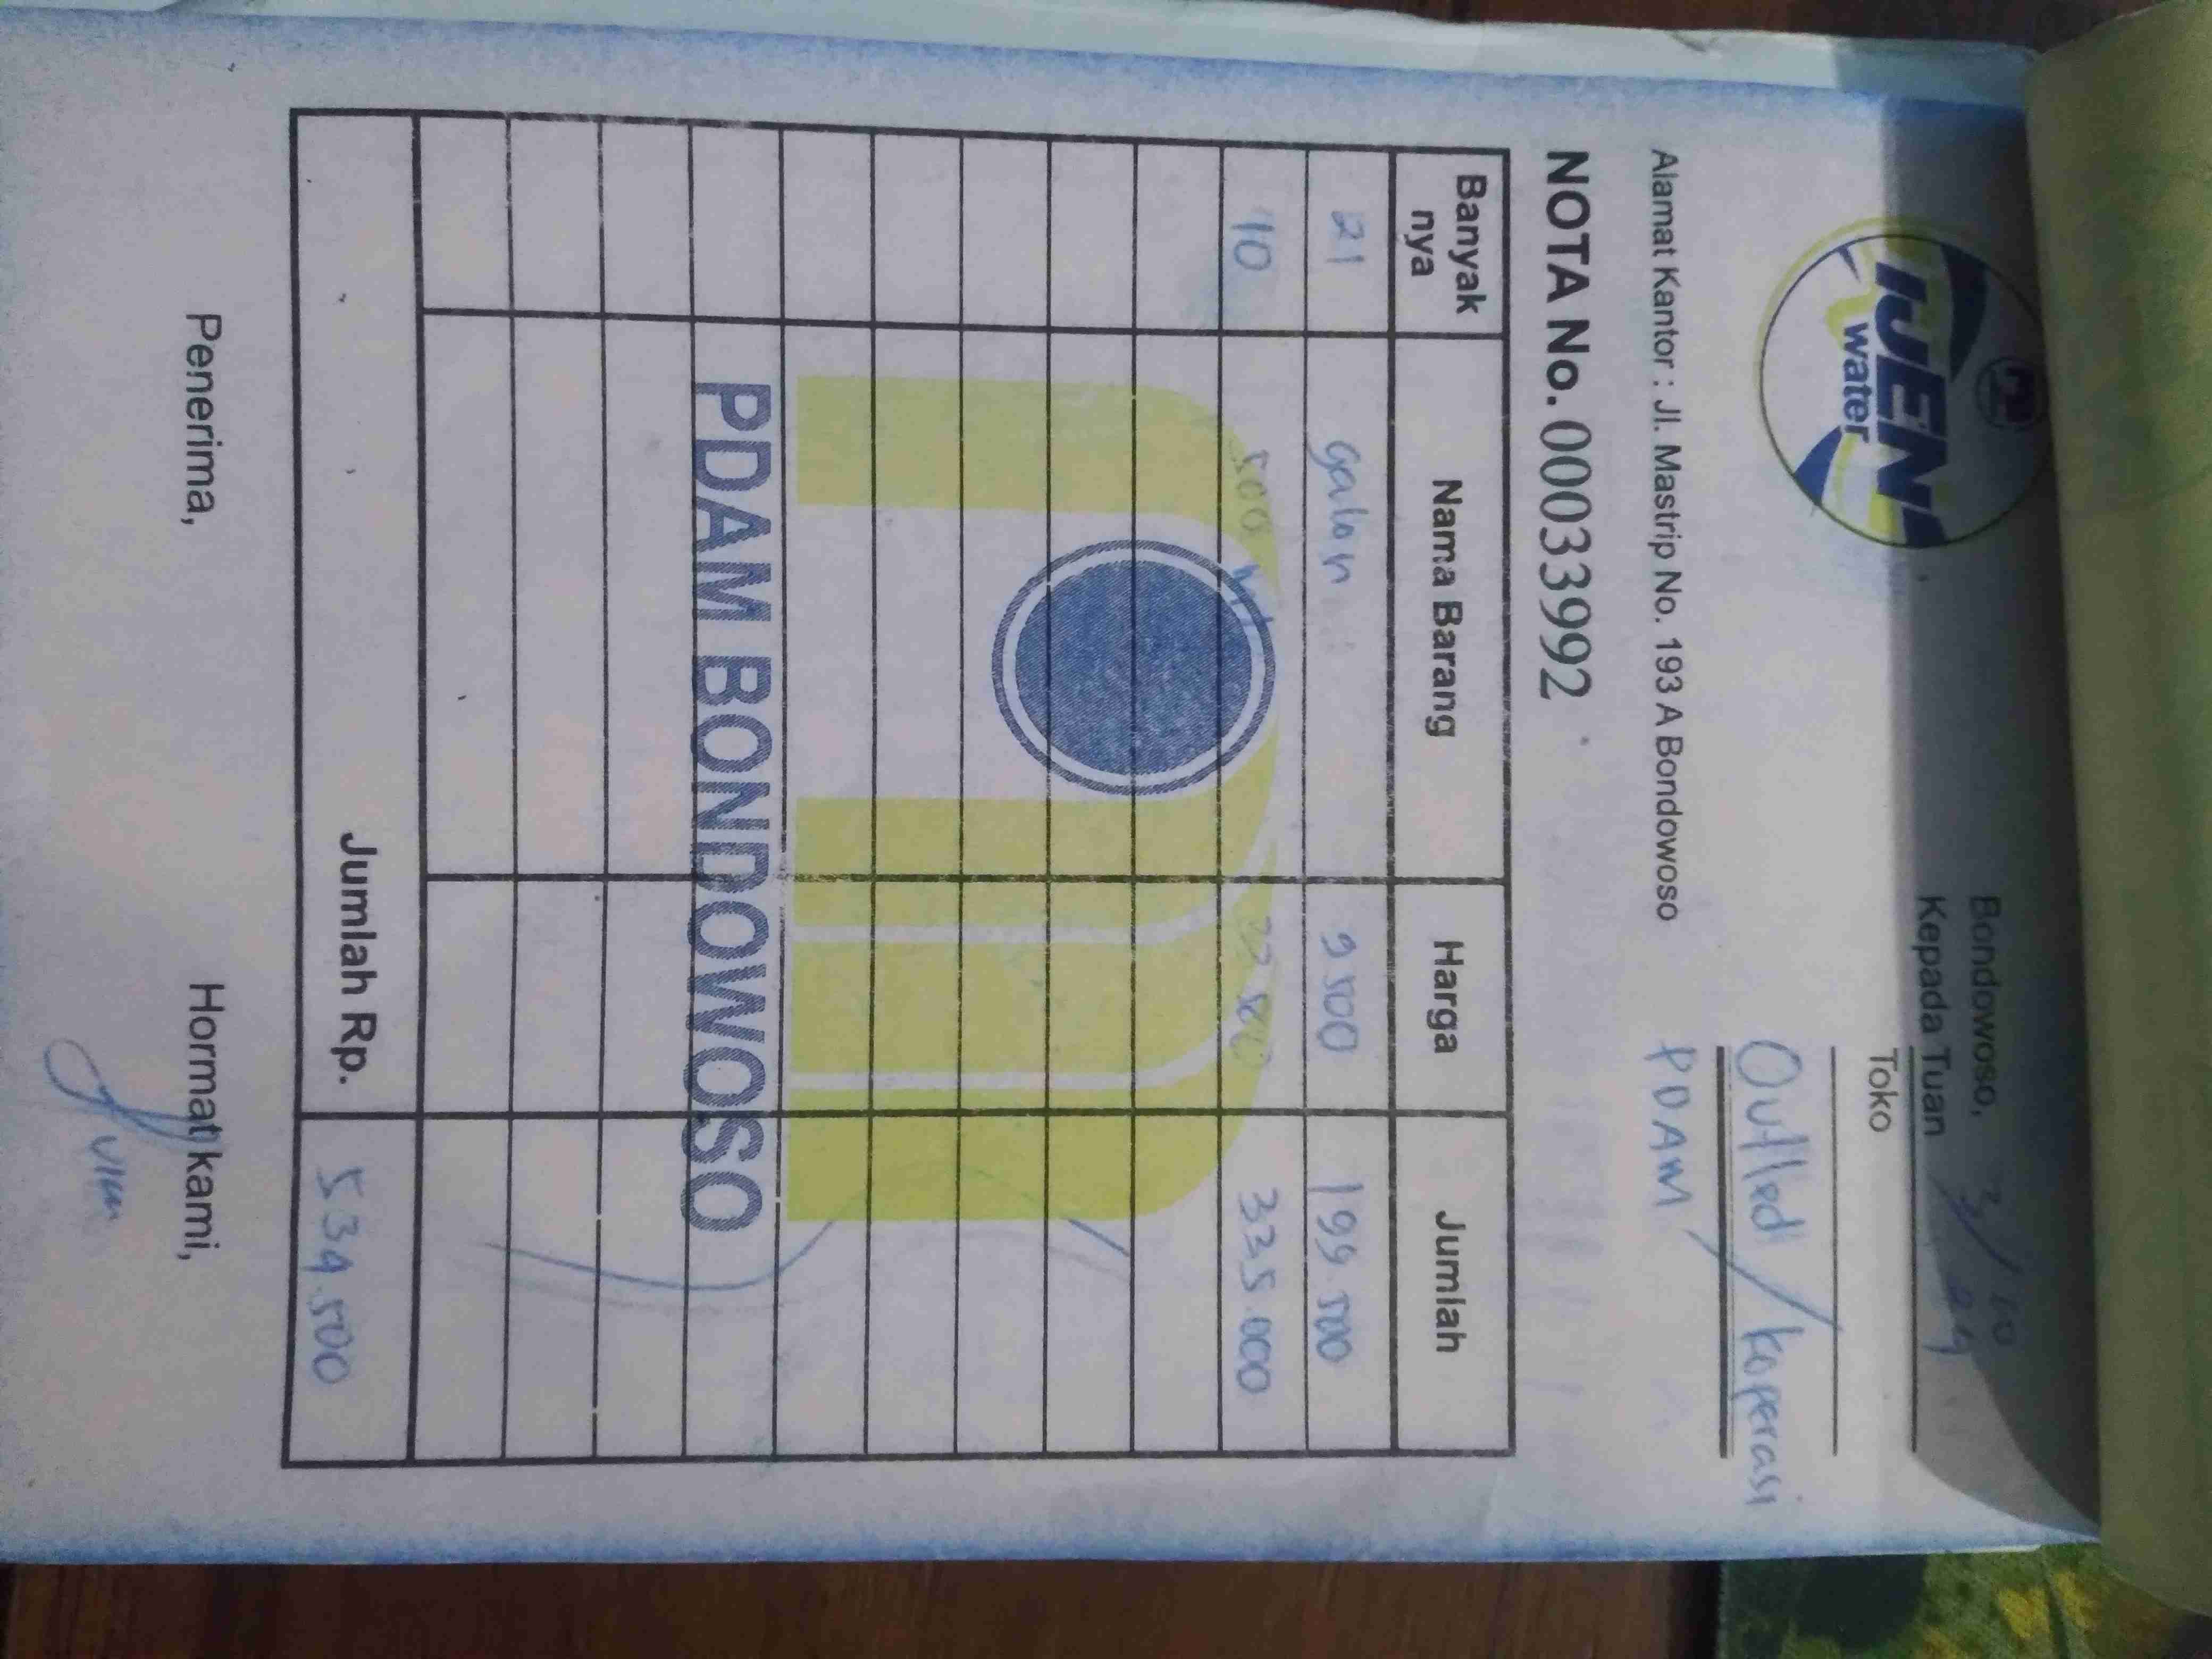 IJEN
water
Bondowoso, 3/10
Kepada Tuan 24
Toko
Outlled / Koperasi
PDAM
Alamat Kantor : Jl. Mastrip No. 193 A Bondowoso
NOTA No. 00033992
Banyak nya Nama Barang Harga Jumlah
21 galon 9 500 199.500
10 500 Ml 33 500 335.000
PDAM BONDOWOSO
Jumlah Rp. 534.500
Penerima, Hormat kami,